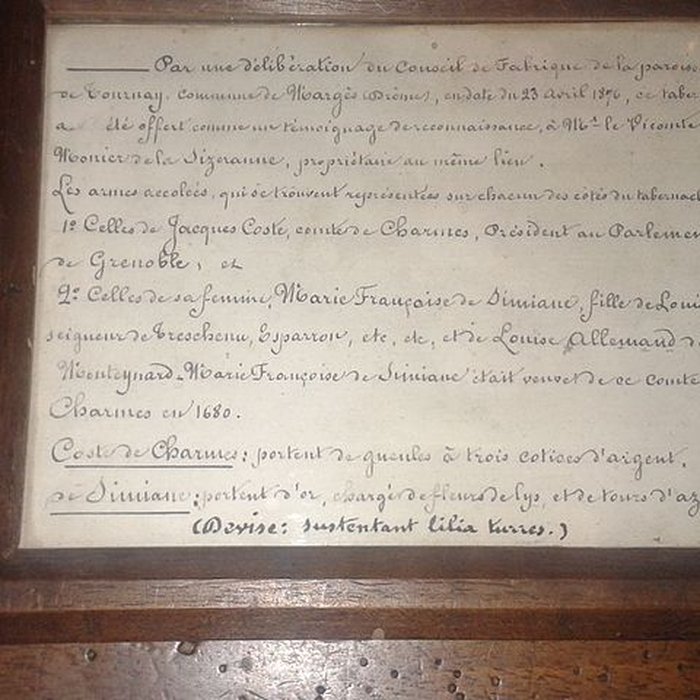 Par une délibération du Conseil de Fabrique de la parois
de Tournay, commune de Margès (Drôme), en date du 23 Avril 1876, ce taber
a été offert comme un témoignage de reconnaissance, à Mr. le Vicomte
Monier de la Sizeranne, propriétaire au même lieu.
Les armes accolées, qui se trouvent représentées sur chacun des côtés du tabernacl
1º Celles de Jacques Coste, comte de Charmes, Président au Parlemen
de Grenoble, et
2º Celles de sa femme, Marie Françoise de Simiane, fille de Loui
seigneur de Treschenu, Esparron, etc, etc, et de Louise Allemand de
Monteynard - Marie Françoise de Simiane était veuve de ce comte
Charmes en 1680.
Coste de Charmes : portent de gueules à trois cotices d'argent.
de Simiane : portent d'or, chargé de fleurs de lys, et de tours d'az
(Devise : sustentant lilia turres.)